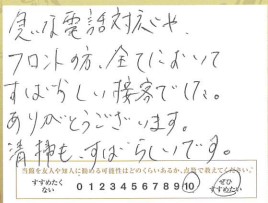 急な電話対応や、
フロントの方、全てにおいて
すばらしい接客でした。
ありがとうございます。
清掃も、すばらしいです。
当館を友人や知人に勧める可能性はどのくらいあるか、点数で教えてください。
すすめたくない 0 1 2 3 4 5 6 7 8 9 10 ぜひすすめたい